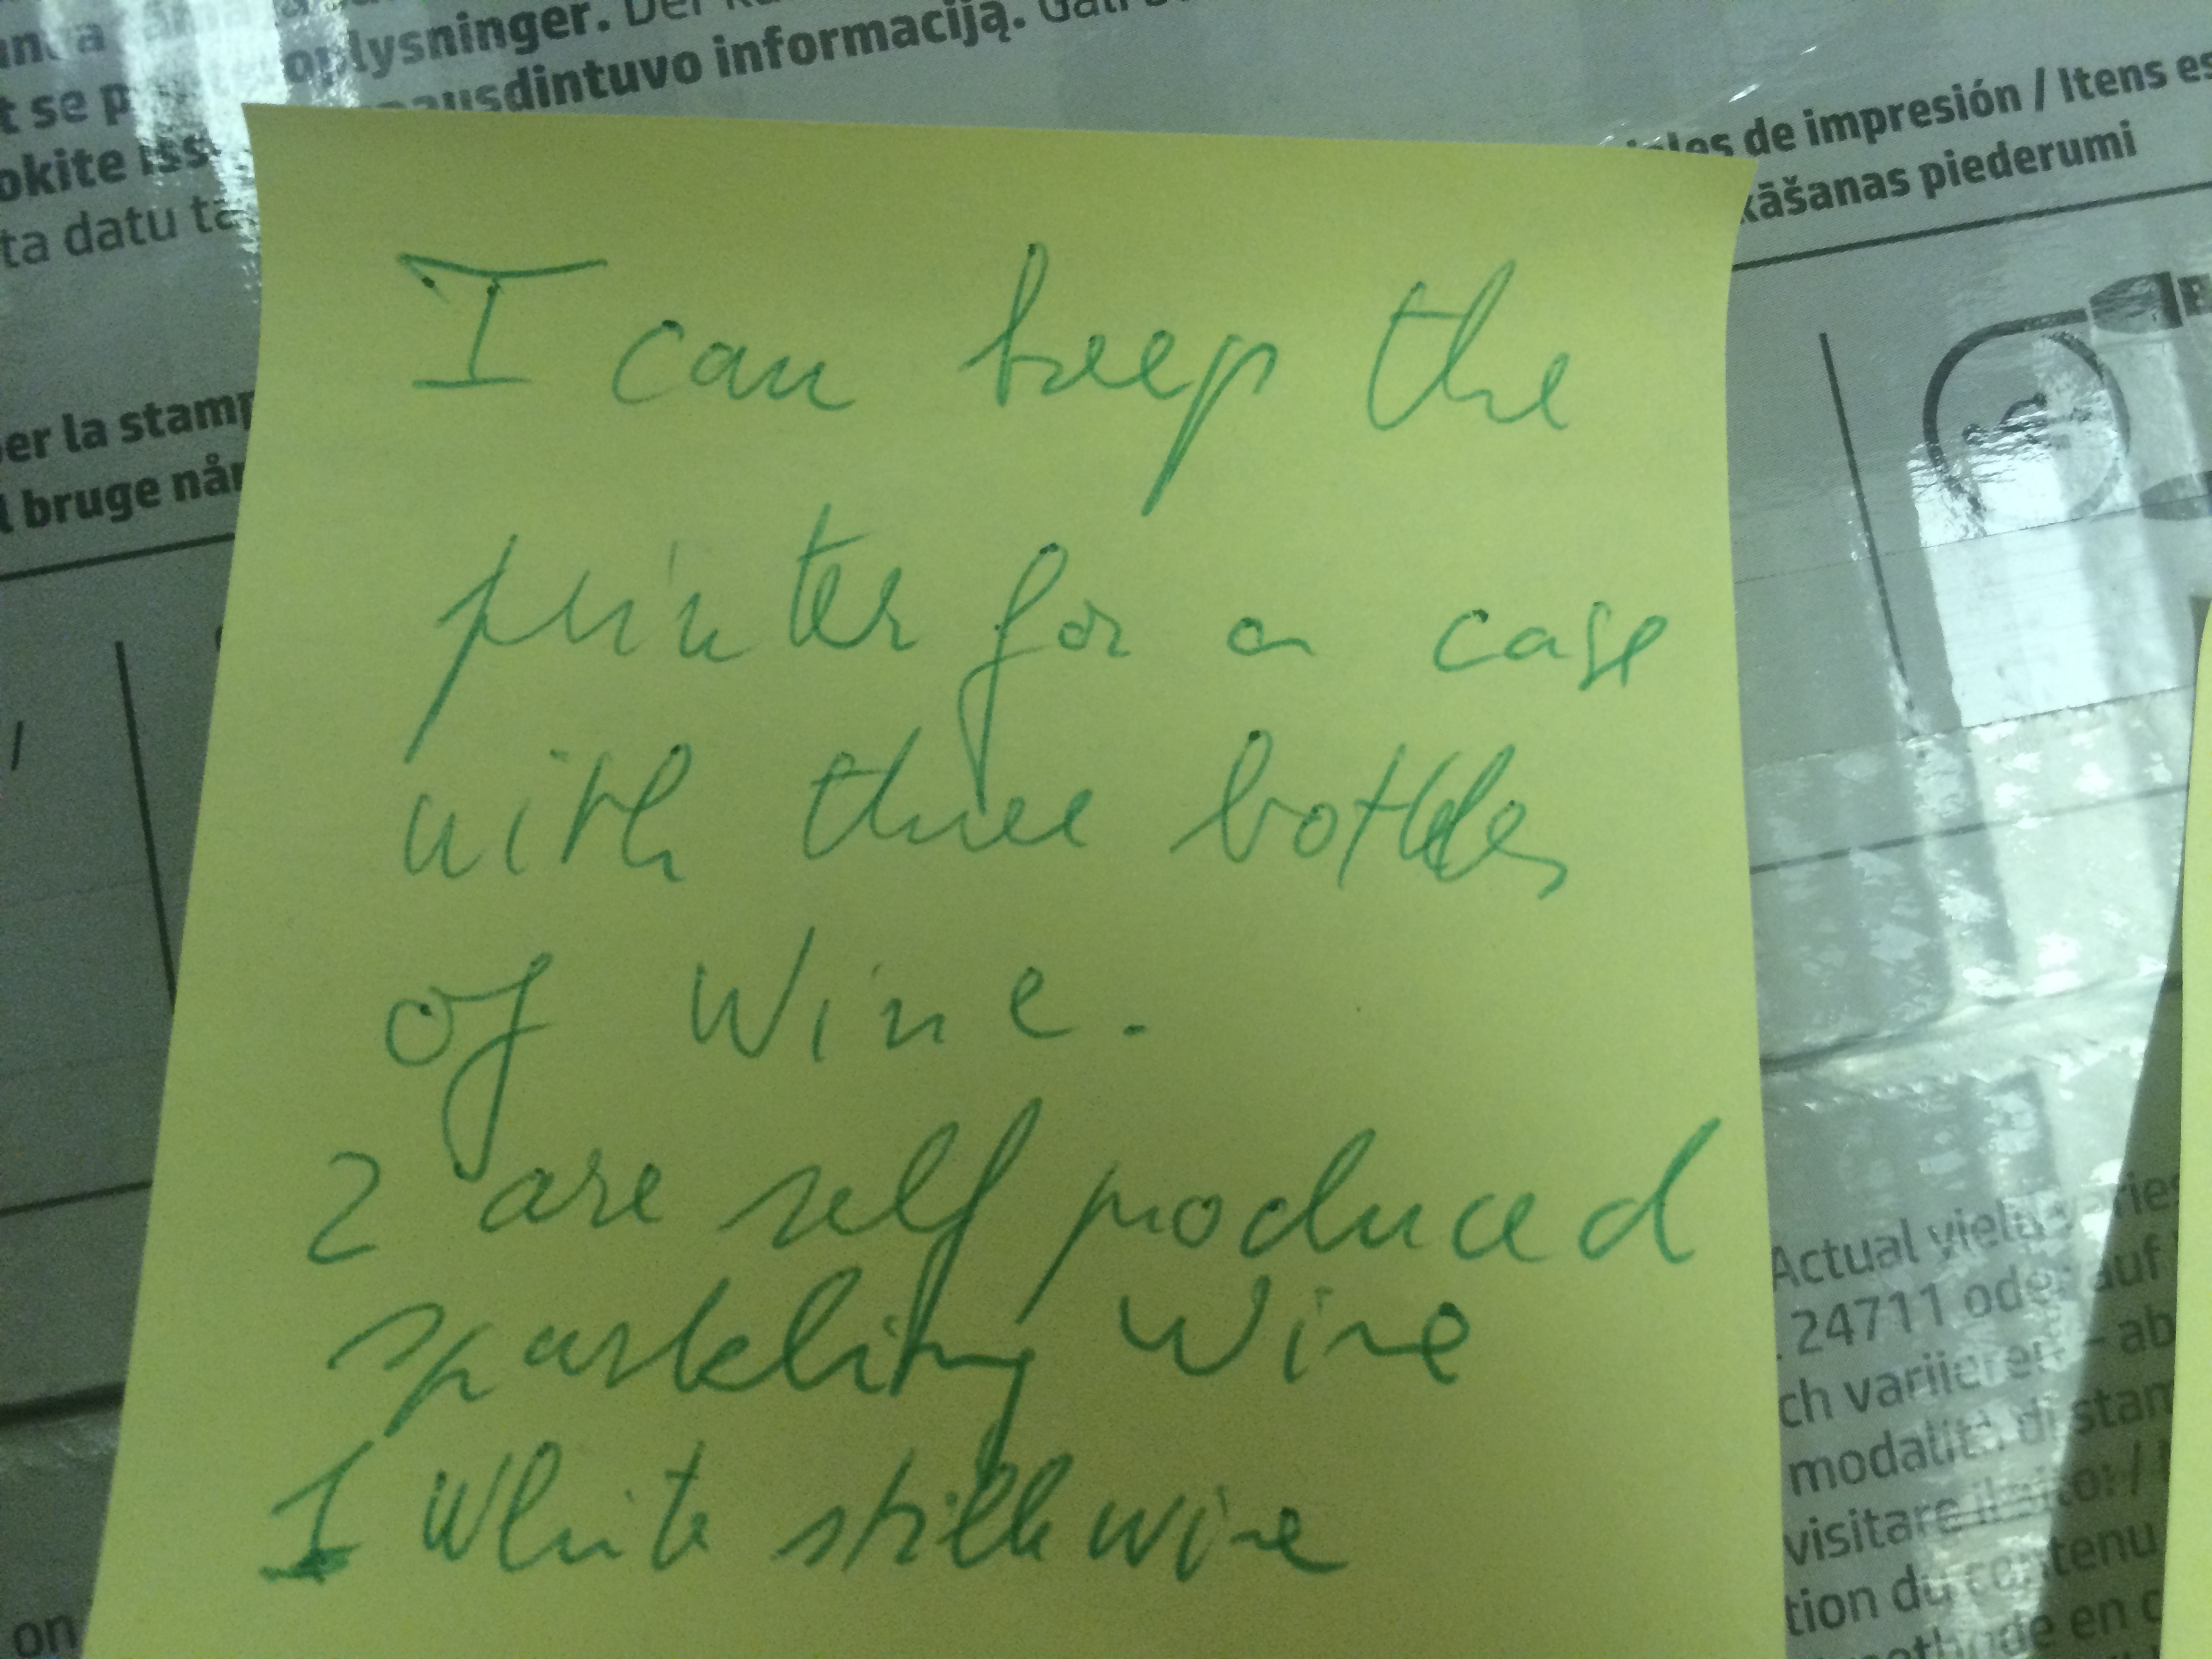 oplysninger. Der
pausdintuvo informaciją.
t se p
okite iss
ta datu
de impresión / Itens es
kāšanas piederumi
er la stamp
l bruge når
I can keep the
printer for a case
with three bottles
of wine.
2 are self produced
sparkling wine
1 White still wine
Actual yield varies
24711 oder auf
ch variieren - ab
modalità di stam
visitare il sito: /
tion du contenu
methode en c
on